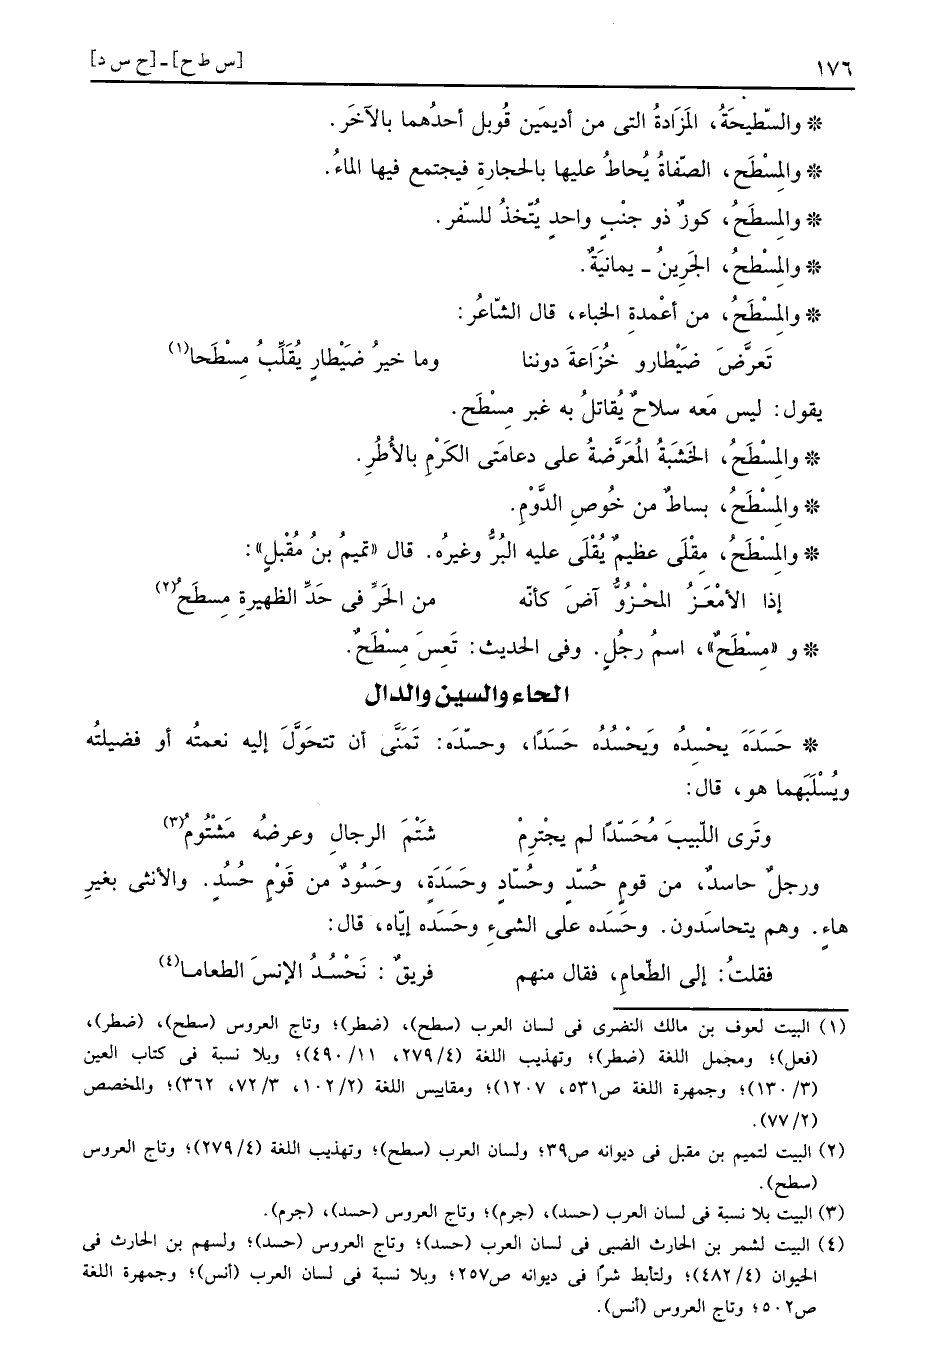 ١٧٦ [س ط ح] ـ [ح س د]
* والسّطيحَةُ، المَزَادةُ التى من أديمَين قُوبل أحدُهما بالآخَر.
* والمِسْطَح، الصّفاةُ يُحاطُ عليها بالحجارةِ فيجتمع فيها الماءُ.
* والمِسطَحُ، كوزٌ ذو جنْبٍ واحدٍ يُتّخذُ للسّفر.
* والمِسْطحُ، الجَرِينُ ـ يمانيَةٌ.
* والمِسْطَحُ، من أعْمدةِ الخباء، قال الشّاعُر:
تَعرَّضَ ضَيْطارو خُزَاعةَ دوننا وما خيرُ ضَيْطارٍ يُقَلِّبُ مِسْطَحا(١)
يقول: ليس مَعه سلاحٌ يُقاتلُ به غبر مِسْطَح.
* والمِسْطَحُ، الخَشبَةُ المُعَرَّضةُ على دعامَتى الكَرْمِ بالأُطُرِ.
* والمِسْطَحُ، بساطٌ من خُوصِ الدَّوْمِ.
* والمِسْطَحُ، مِقْلَى عظيمٌ يُقْلَى عليه البُرُّ وغيرُه. قال «تميمُ بنُ مُقْبلٍ»:
إذا الأمْعَـزُ المحْـزوُّ آضَ كأنّه من الحَرِّ فى حَدِّ الظهيرةِ مِسطَحُ(٢)
* و «مِسْطَحٌ»، اسمُ رجُلٍ. وفى الحديث: تَعِسَ مِسْطَحٌ.
الحاء والسين والدال
* حَسَدَه يحْسِدُه وَيَحْسُدُه حَسَدًا، وحسّدَه: تَمَنَّى أن تتحَوَّلَ إليه نعمتُه أو فضيلتُه
ويُسْلَبَهما هو، قال:
وتَرى اللّبيبَ مُحَسّدًا لم يجْترِمْ شَتْمَ الرجالِ وعرضُه مَشْتُومُ(٣)
ورجلٌ حاسدٌ، من قومٍ حُسّدٍ وحُسّادٍ وحَسَدَةٍ، وحَسُودٌ من قَوْمٍ حُسُدٍ. والأنثى بغيرِ
هاءٍ. وهم يتحاسَدون. وحَسَده على الشىءِ وحَسَده إيّاه، قال:
فقلتُ: إلى الطّعامِ، فقال منهم فريقٌ: نَحْسُـدُ الإنسَ الطعامـا(٤)
(١) البيت لعوف بن مالك النضرى فى لسان العرب (سطح)، (ضطر)؛ وتاج العروس (سطح)، (ضطر)،
(فعل)؛ ومجمل اللغة (ضطر)؛ وتهذيب اللغة (٢٧٩/٤، ٤٩٠/١١)؛ وبلا نسبة فى كتاب العين
(١٣٠/٣)؛ وجمهرة اللغة ص٥٣١، ١٢٠٧)؛ ومقاييس اللغة (١٠٢/٢، ٧٢/٣، ٣٦٢)؛ والمخصص
(٧٧/٢).
(٢) البيت لتميم بن مقبل فى ديوانه ص٣٩؛ ولسان العرب (سطح)؛ وتهذيب اللغة (٢٧٩/٤)؛ وتاج العروس
(سطح).
(٣) البيت بلا نسبة فى لسان العرب (حسد)، (جرم)؛ وتاج العروس (حسد)، (جرم).
(٤) البيت لشمر بن الحارث الضبى فى لسان العرب (حسد)؛ وتاج العروس (حسد)؛ ولسهم بن الحارث فى
الحيوان (٤٨٢/٤)؛ ولتأبط شرًا فى ديوانه ص٢٥٧؛ وبلا نسبة فى لسان العرب (أنس)؛ وجمهرة اللغة
ص٥٠٢؛ وتاج العروس (أنس).